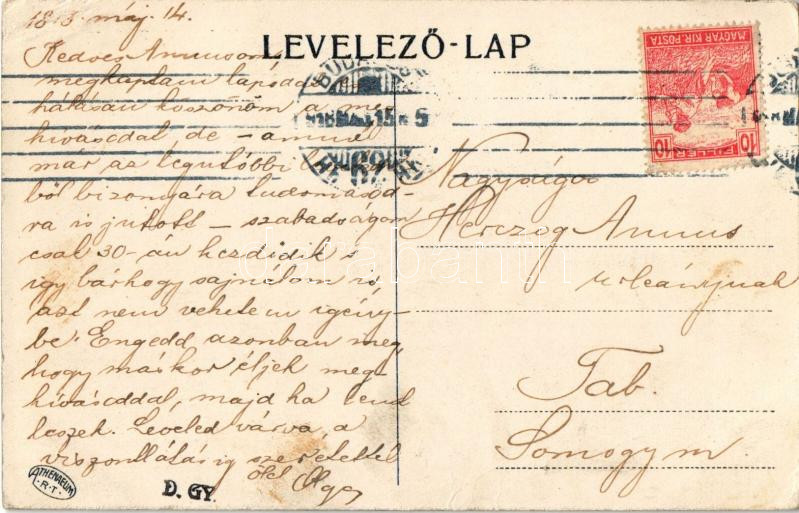 1918. máj. 14.
LEVELEZŐ-LAP
Kedves Annusom,
megkaptam lapodat
hálásan köszönöm a meg-
hívásodat, de – amint
már az legutóbbi
ből bizonyára tudomásod-
ra is jutott – szabadságom
csak 30-án kezdődik s
így bárhogy sajnálom is,
azt nem vehetem igény-
be. Engedd azonban meg,
hogy máskor éljek meg-
hívásoddal, majd ha lent
leszek. Leveled várva, a
viszontlátásig szeretettel
ölel Olga
BUDAPEST
918 MÁJ. 15
MAGYAR KIR. POSTA
10 FILLÉR 10
Nagyságos
Herczog Annus
urleánynak
Tab.
Somogy m
darabanth
ATHENAEUM
R.T.
D. GY.